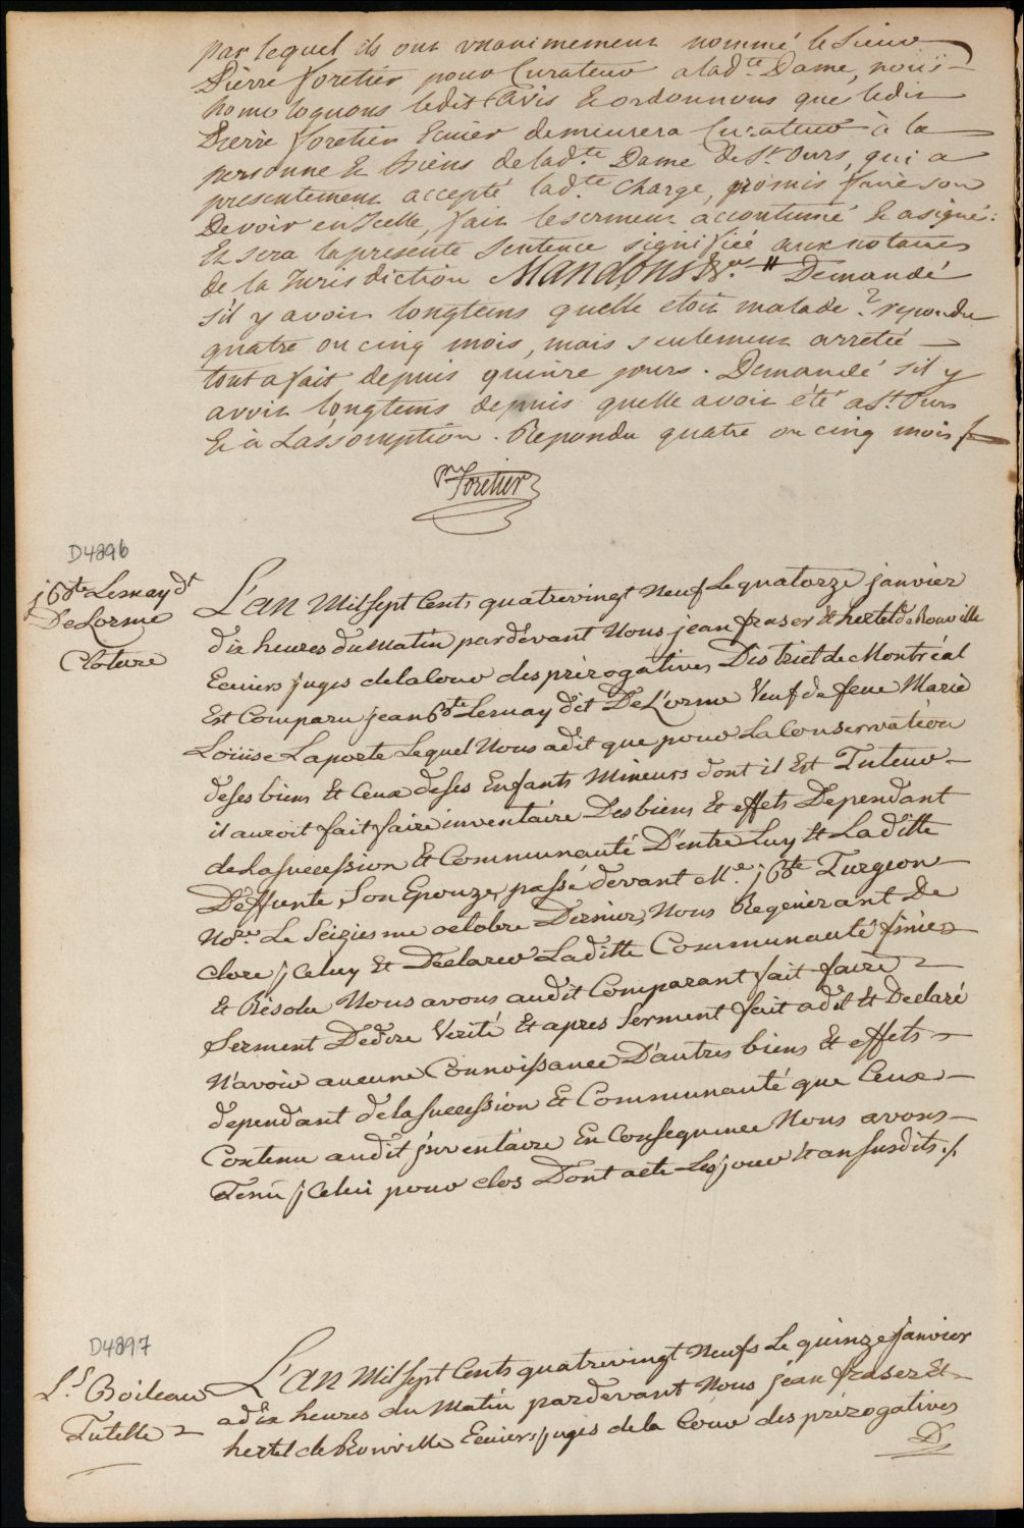 par lequel ils ont unanimement nommé le Sieur
Pierre foretier pour Curateur a lad.te Dame, nous
homologuons ledit Avis & ordonnons que ledit
Pierre foretier Ecuier demeurera Curateur à la
personne & biens de lad.te Dame de St. Ours, qui a
presentement accepté lad.te Charge, promis faire son
Devoir en Icelle, fait le serment accoutumé & a signé:
Et sera la presente Sentence signifiée aux notaires
de la Jurisdiction Mandons &c. # Demandé
s'il y avoit longtems quelle etoit malade? repondu
quatre ou cinq mois, mais seulement arretée
tout a fait depuis quinze jours. Demandé s'il y
avoit longtems depuis quelle avoit été a St. Ours
& à Lassomption. Repondu quatre ou cinq mois
Pre foretier
D4896
j Bte Lemay dt
DeLorme
Cloture
L'an Mil sept Cents quatrevingt Neuf Le quatorze janvier
dix heures du Matin pardevant Nous jean fraser & hertel de Rouville
Ecuiers juges de la Cour des prérogatives District de Montréal
Est Comparu jean Bte Lemay dit DeLorme Veuf de feue Marie
Loüise Laporte Lequel Nous a dit que pour La Conservation
de ses biens Et Ceux de ses Enfants Mineurs dont il Est Tuteur
il auroit fait faire inventaire Des biens Et effets Dependant
de la succession Et Communauté D'entre Luy Et Laditte
Deffunte Son Epouze, passé devant Me. j Bte Turgeon
Nore. Le Seiziesme octobre Dernier, Nous Requierant De
Clore jCeluy Et Déclarer Laditte Communauté finie
& Résolu Nous avons audit Comparant fait faire
Serment De dire Verité Et apres Serment fait a dit Et Declaré
N'avoir aucune Connoissance D'autres biens Et effets
dependant de la succession Et Communauté que Ceux
Contenu audit jnventaire En Consequence Nous avons
Tenu jCelui pour clos Dont acte Les jour Et an susdits ./.
D4897
L.s Boileau
Tutelle
L'an Mil sept Cents quatrevingt Neufs Le quinze janvier
a dix heures du Matin pardevant Nous jean fraser Et
hertel de Rouville Ecuiers juges de la Cour des prérogatives
D